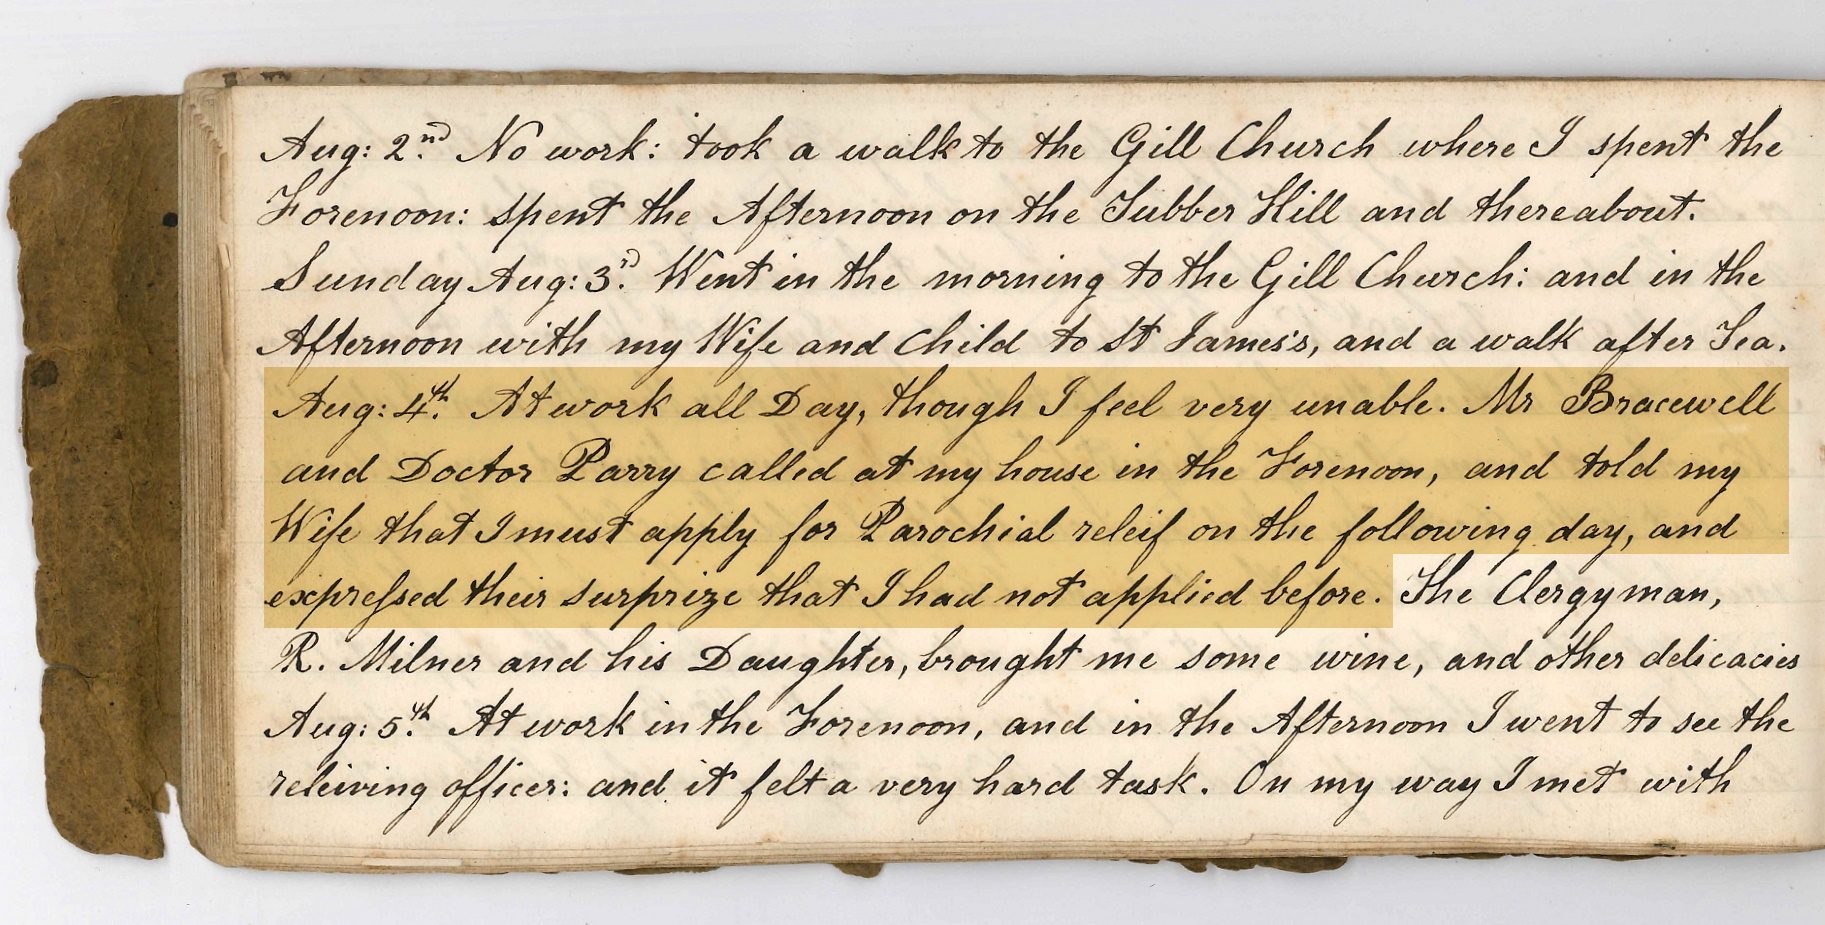 Aug: 2nd. No work: took a walk to the Gill Church where I spent the
Forenoon: spent the Afternoon on the Tubber Hill and thereabout.
Sunday Aug: 3rd. Went in the morning to the Gill Church: and in the
Afternoon with my Wife and Child to St James's, and a walk after Tea.
Aug: 4th. At work all Day, though I feel very unable. Mr Bracewell
and Doctor Parry called at my house in the Forenoon, and told my
Wife that I must apply for Parochial releif on the following day, and
expreſsed their surprize that I had not applied before. The Clergyman,
R. Milner and his Daughter, brought me some wine, and other delicacies
Aug: 5th. At work in the Forenoon, and in the Afternoon I went to see the
releiving officer: and it felt a very hard task. On my way I met with